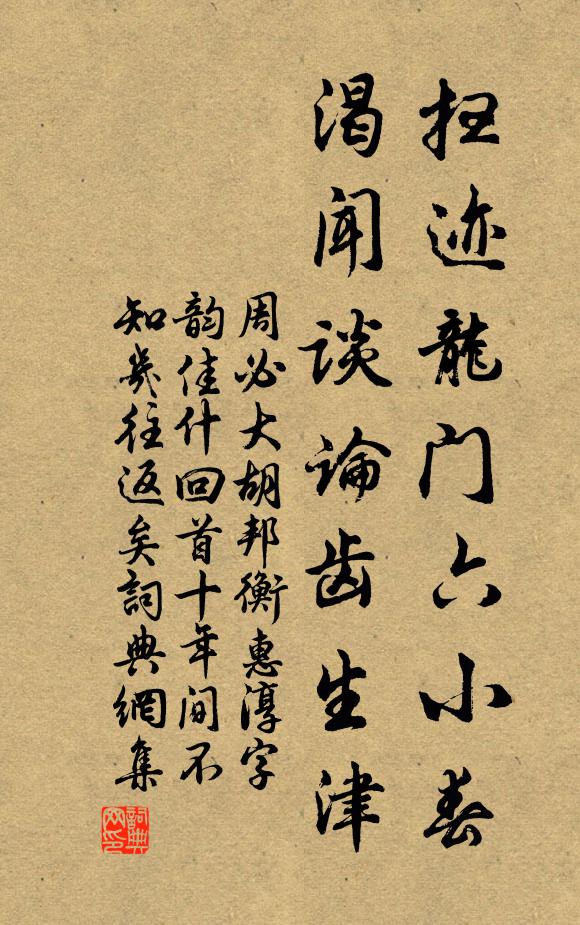 扫迹龍门六小春
渴闻谈論齿生津
周必大胡邦衡惠淳字
韵佳什回首十年间不
知幾往返矣詞典網集
詞典網印